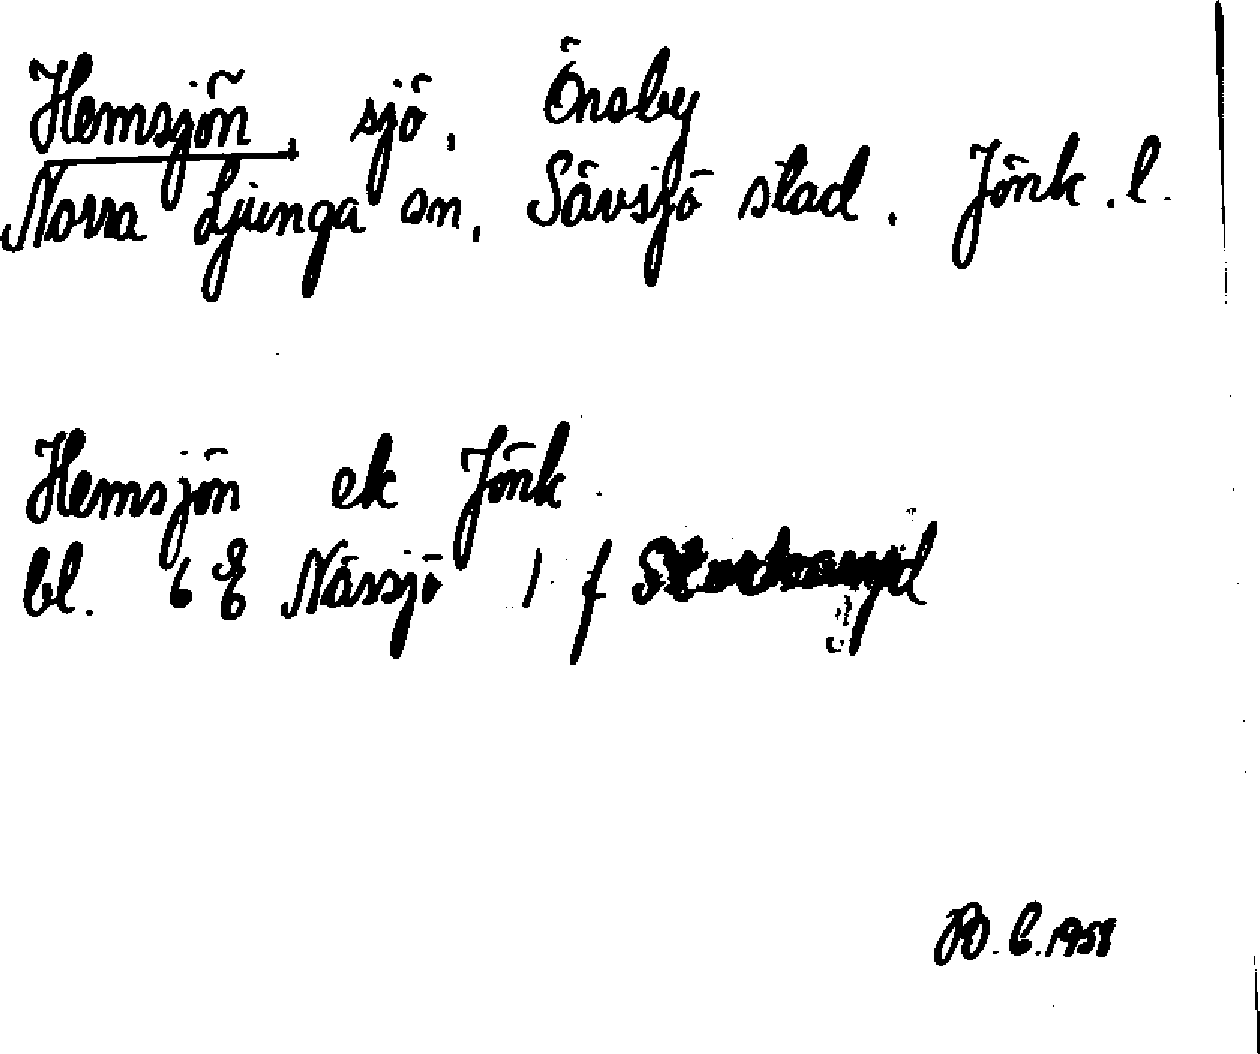 Hemsjön, sjö, Önsby
Norra Ljunga sn, Sävsjö stad. Jönk. l.
Hemsjön ek Jönk.
bl. 6 E Nässjö 1 f
B. E. 1958